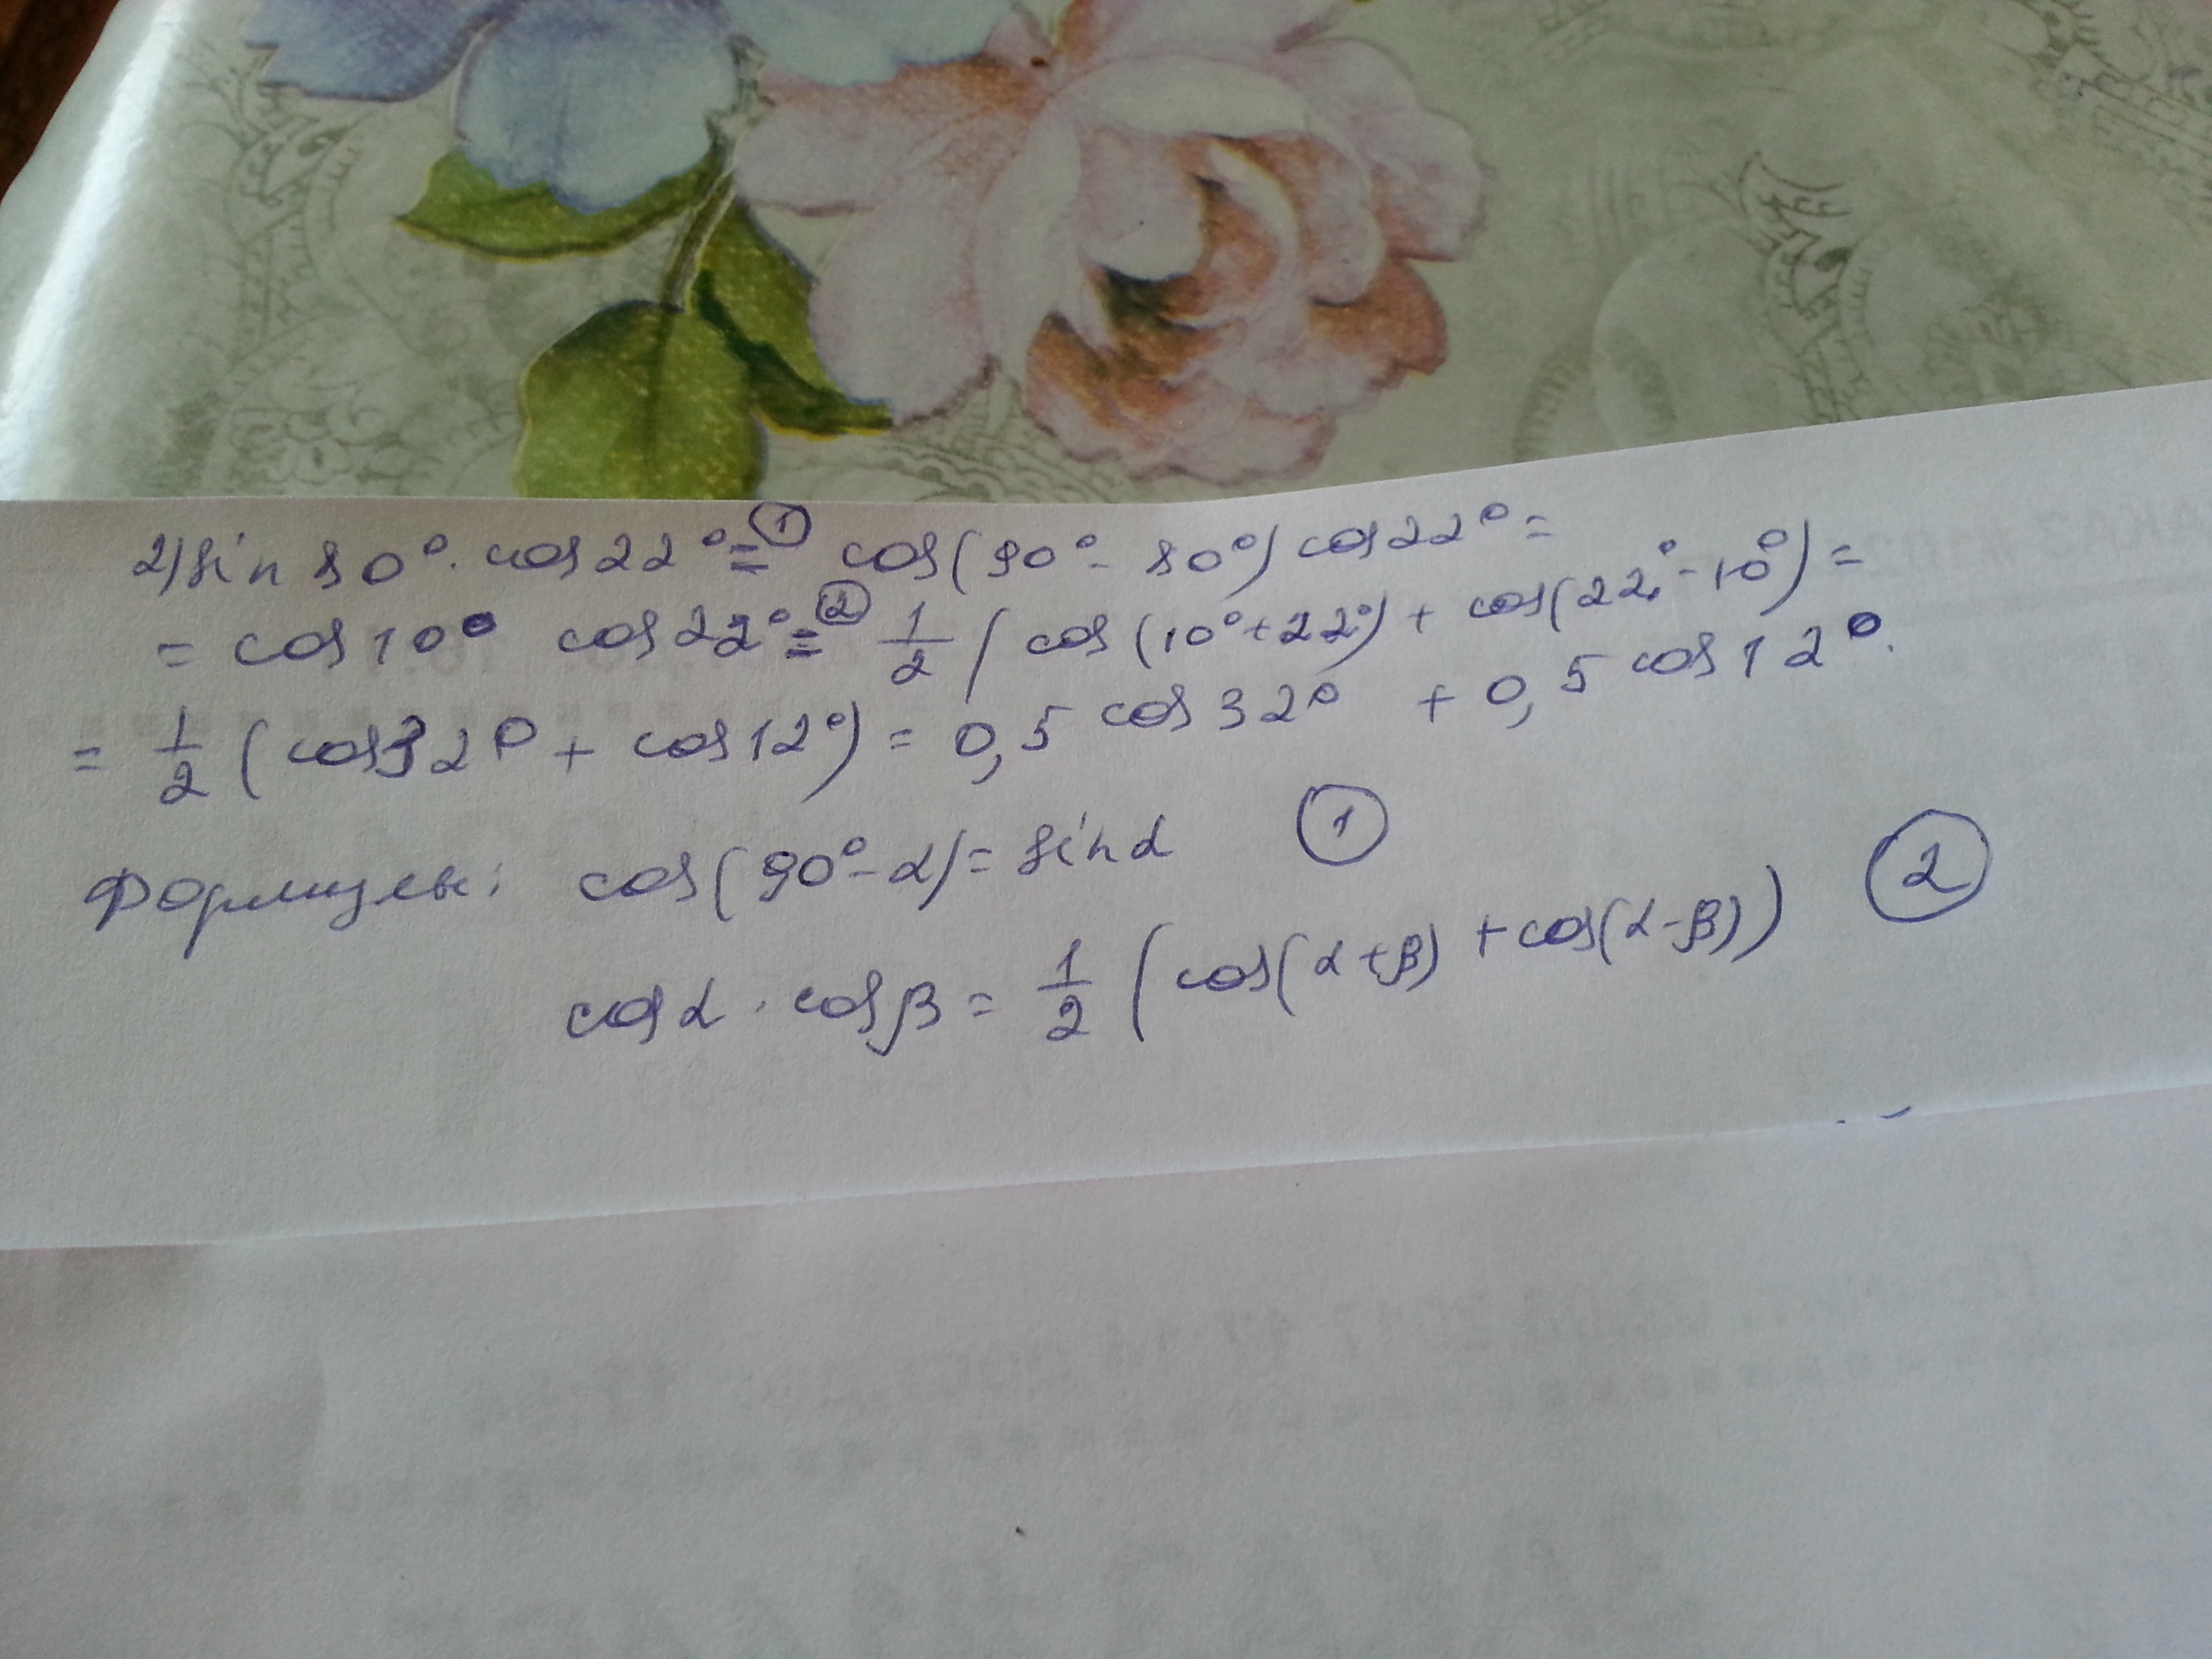 2) sin 80° · cos 22° =① cos(90° - 80°) cos 22° =
= cos 10° cos 22° =② 1/2 (cos(10° + 22°) + cos(22° - 10°) =
= 1/2 (cos 32° + cos 12°) = 0,5 cos 32° + 0,5 cos 12°.
Формулы: cos(90° - α) = sin α ①
cos α · cos β = 1/2 (cos(α + β) + cos(α - β)) ②